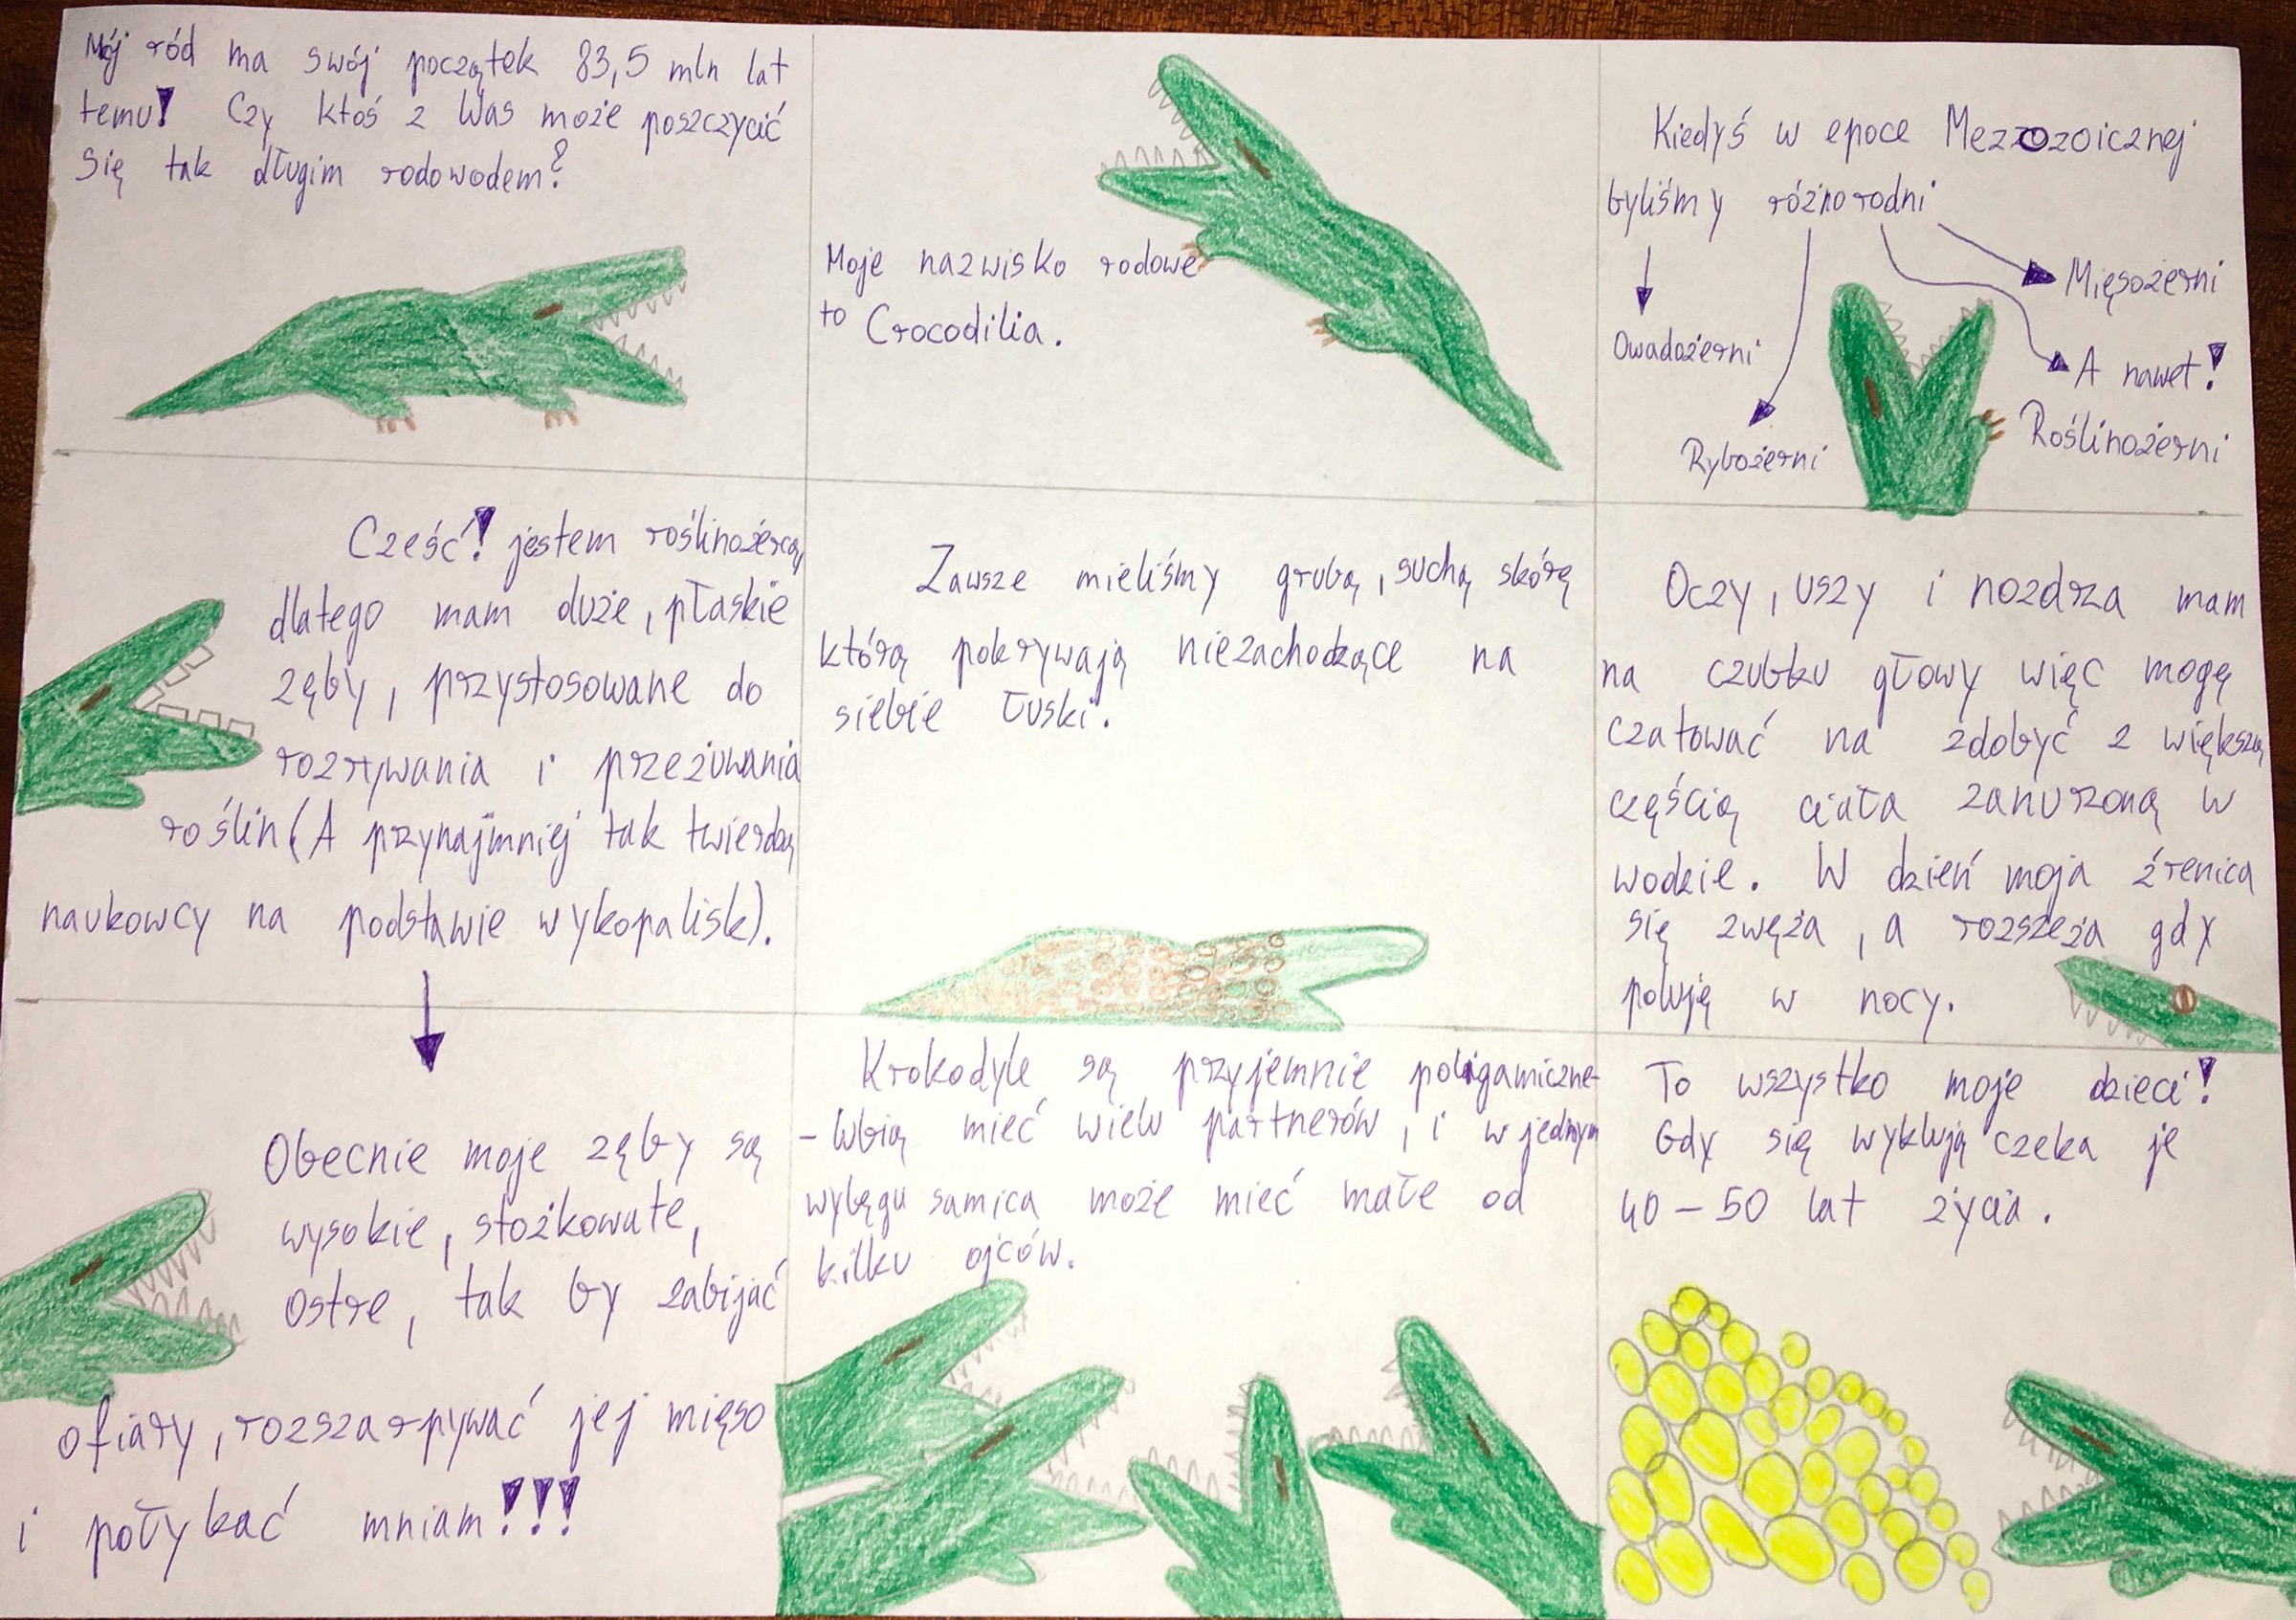 Mój ród ma swój początek 83,5 mln lat
temu! Czy ktoś z Was może poszczycić
się tak długim rodowodem?
Moje nazwisko rodowe
to Crocodilia.
Kiedyś w epoce Mezzozoicznej
byliśmy różnorodni
Mięsożerni
Owadożerni
A nawet!
Roślinożerni
Rybożerni
Cześć! jestem roślinożercą,
dlatego mam duże, płaskie
zęby, przystosowane do
rozrywania i przeżuwania
roślin (A przynajmniej tak twierdzą
naukowcy na podstawie wykopalisk).
Zawsze mieliśmy grubą, suchą skórę
którą pokrywają niezachodzące na
siebie łuski.
Oczy, uszy i nozdrza mam
na czubku głowy więc mogę
czatować na zdobyć z większą
częścią ciała zanurzoną w
wodzie. W dzień moja źrenica
się zwęża, a rozszeża gdy
poluję w nocy.
Obecnie moje zęby są
wysokie, stożkowate,
ostre, tak by zabijać
ofiary, rozszarpywać jej mięso
i połykać mniam!!!
Krokodyle są przyjemnie poligamiczne-
- lubią mieć wielu partnerów, i w jednym
wylęgu samica może mieć małe od
kilku ojców.
To wszystko moje dzieci!
Gdy się wyklują czeka je
40 - 50 lat życia.